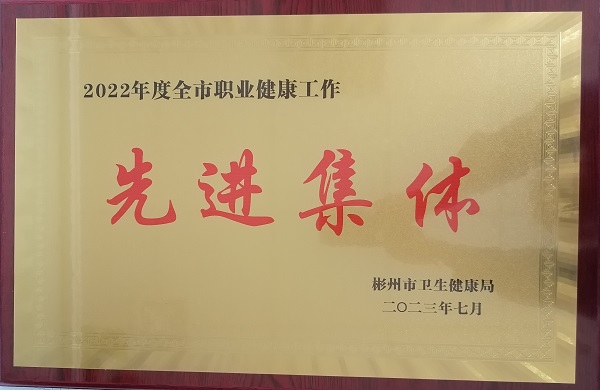 2022年度全市职业健康工作
先进集体
彬州市卫生健康局
二〇二三年七月